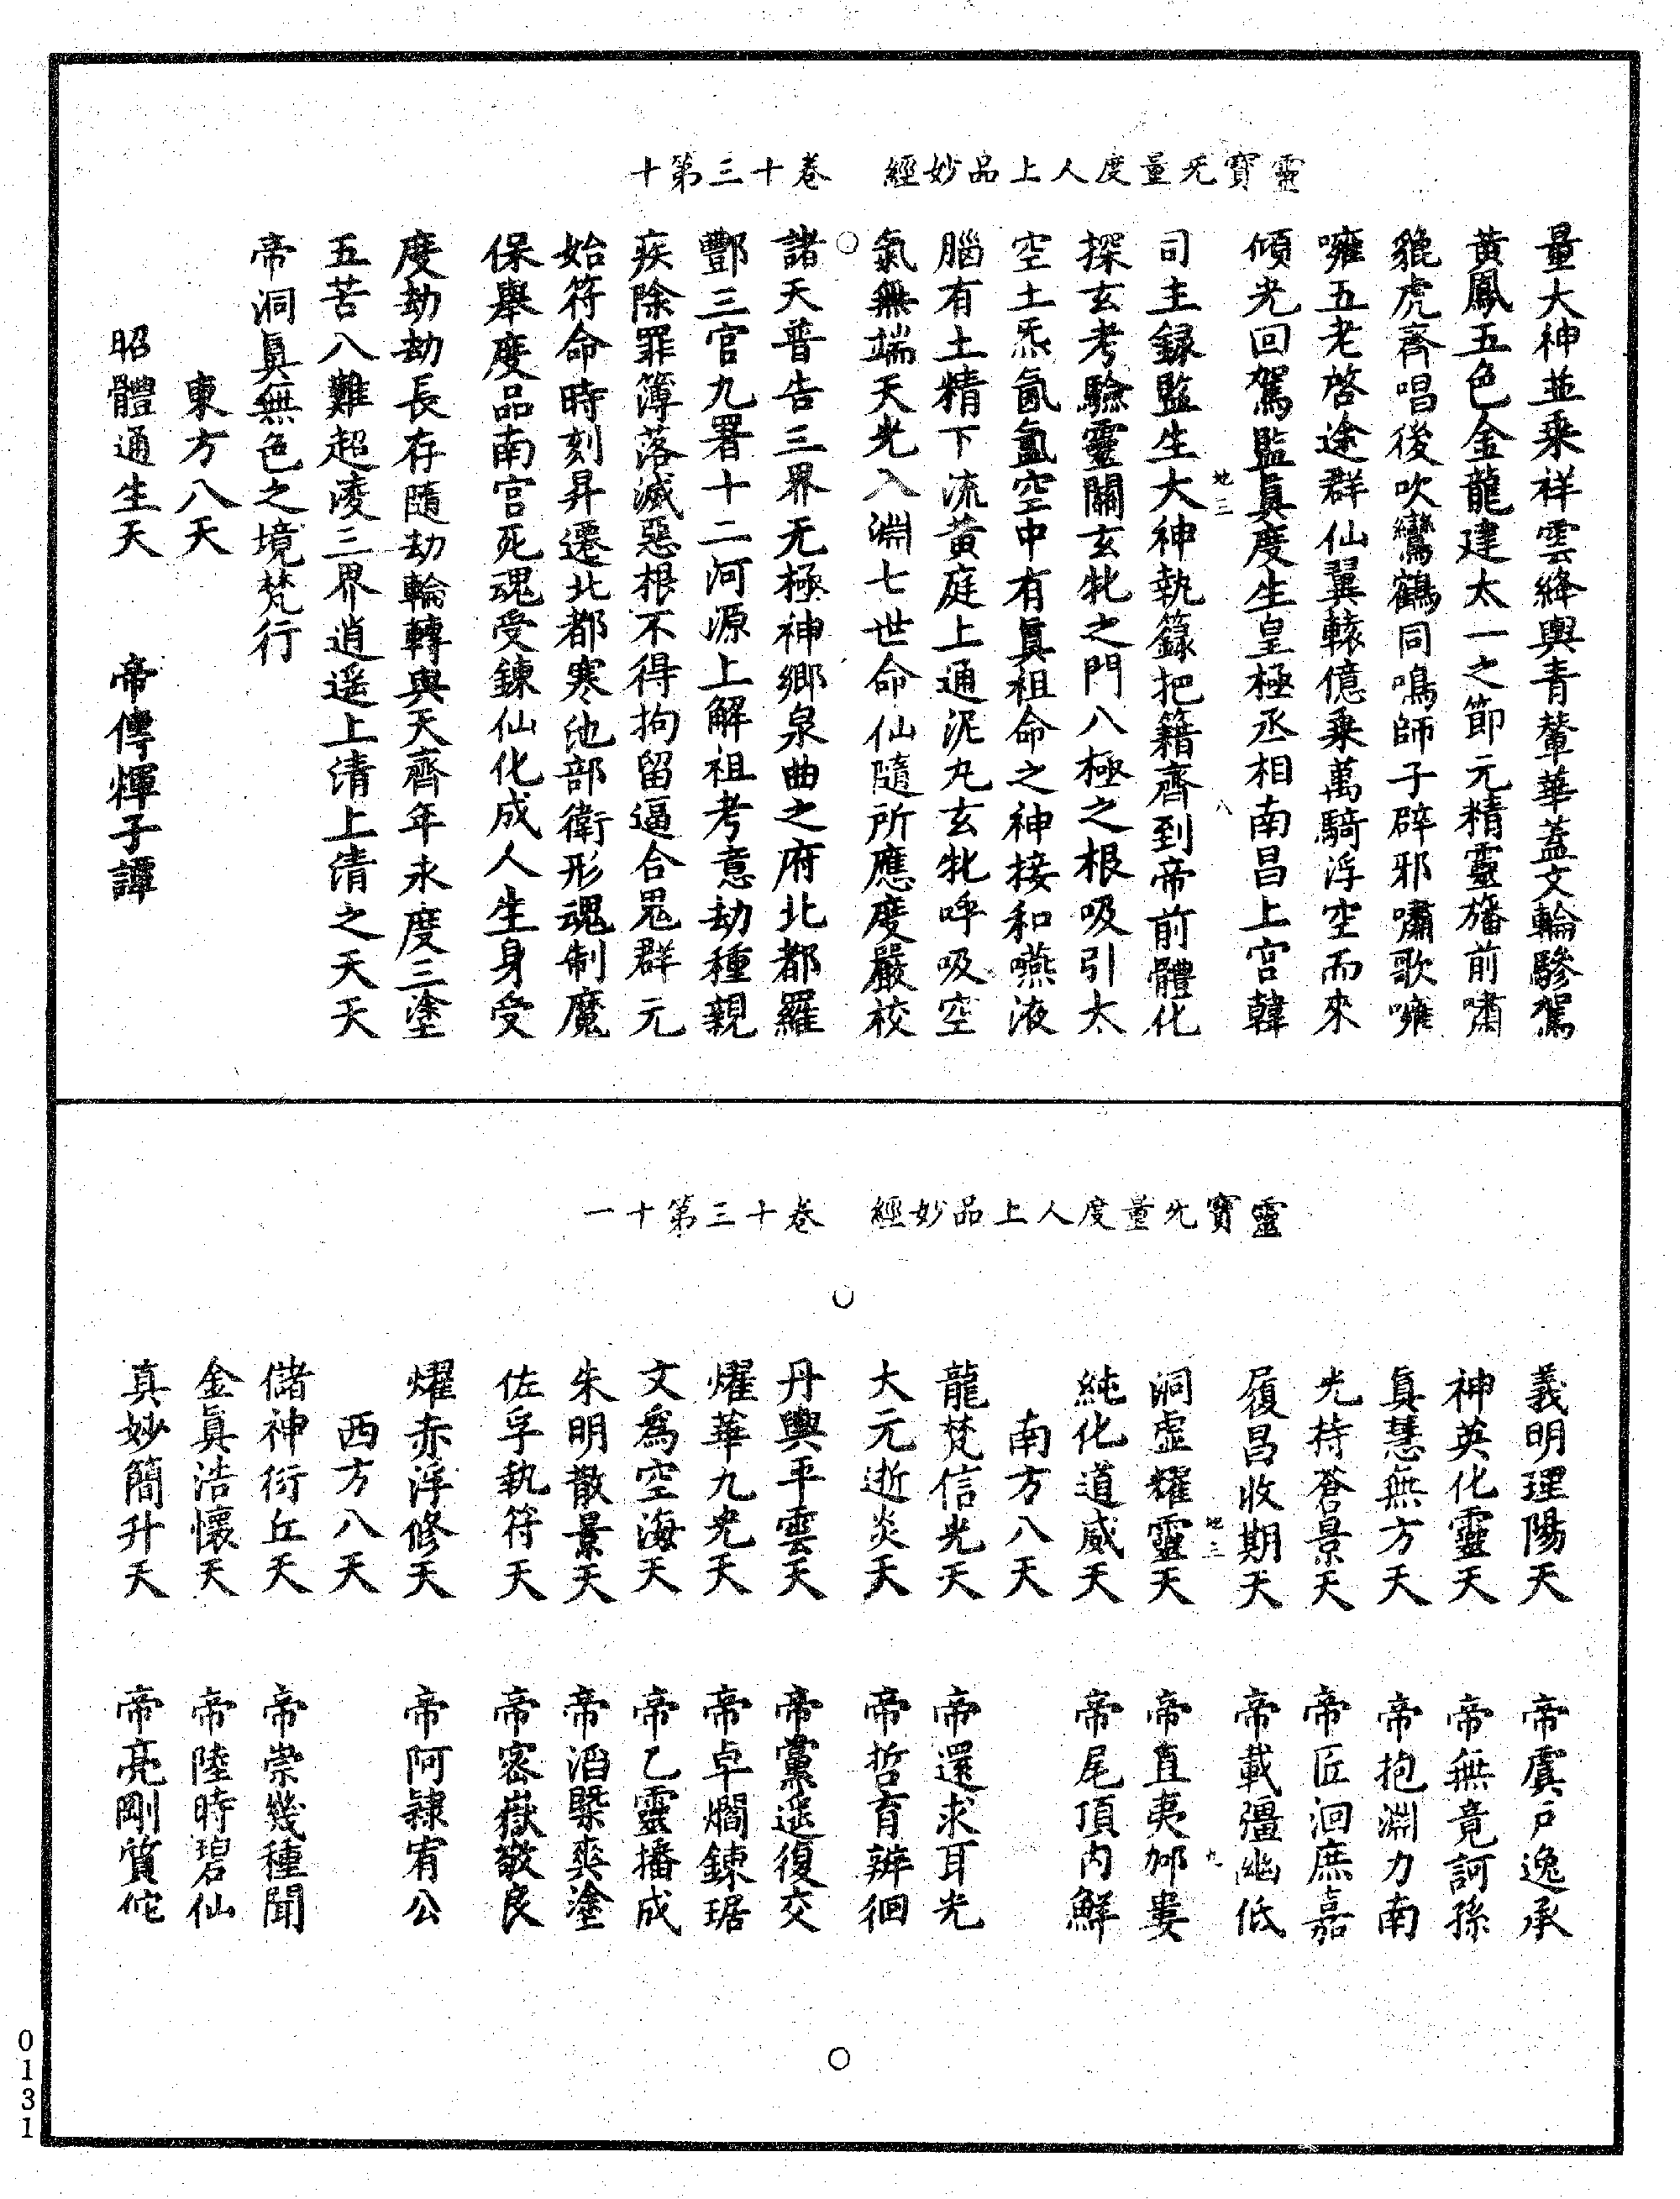 靈寶无量度人上品妙經　卷十三第十
量大神並乘祥雲絳輿青輦華蓋文輪驂駕
黃鳳五色金龍建太一之節元精靈旛前嘯
貔虎齊唱後吹鸞鶴同鳴師子辟邪嘯歌嗈
嗈五老啓途群仙翼轅億乘萬騎浮空而來
傾光回駕監真度生皇極丞相南昌上宫韓
地三　八
司主録監生大神執籙把籍齊到帝前體化
探玄考驗靈關玄牝之門八極之根吸引太
空土炁氤氳空中有真祖命之神接和嚥液
腦有土精下流黃庭上通泥丸玄牝呼吸空
氣無端天光入淵七世命仙隨所應度嚴校
諸天普告三界无極神鄉泉曲之府北都羅
酆三官九署十二河源上解祖考意劫種親
疾除罪簿落滅惡根不得拘留逼合鬼群元
始符命時刻昇遷北都寒池部衛形魂制魔
保舉度品南宫死魂受鍊仙化成人生身受
度劫劫長存隨劫輪轉與天齊年永度三塗
五苦八難超凌三界逍遥上清上清之天天
帝洞真無色之境梵行
東方八天
昭體通生天　帝傳煇子譚
靈寶无量度人上品妙經　卷十三第十一
義明理陽天　帝虞戶逸承
神英化靈天　帝無竟訶孫
真慧無方天　帝抱淵力南
光持蒼景天　帝匠洄庶嘉
履昌收期天　帝載彊幽低
地三　九
洞虛耀靈天　帝直夷邮婁
純化道威天　帝尾頂内鮮
南方八天
龍梵信光天　帝還求耳光
大元逝炎天　帝哲育辨徊
丹輿平雲天　帝黨遥復交
燿華九光天　帝卓燗鍊琚
文為空海天　帝乙靈播成
朱明散景天　帝滔槩爽塗
佐孚執符天　帝密嶽敬良
燿赤浮修天　帝阿隷宥公
西方八天
儲神衍丘天　帝崇幾種聞
金真浩懷天　帝陸時碧仙
真妙簡升天　帝亮剛質佗
0131